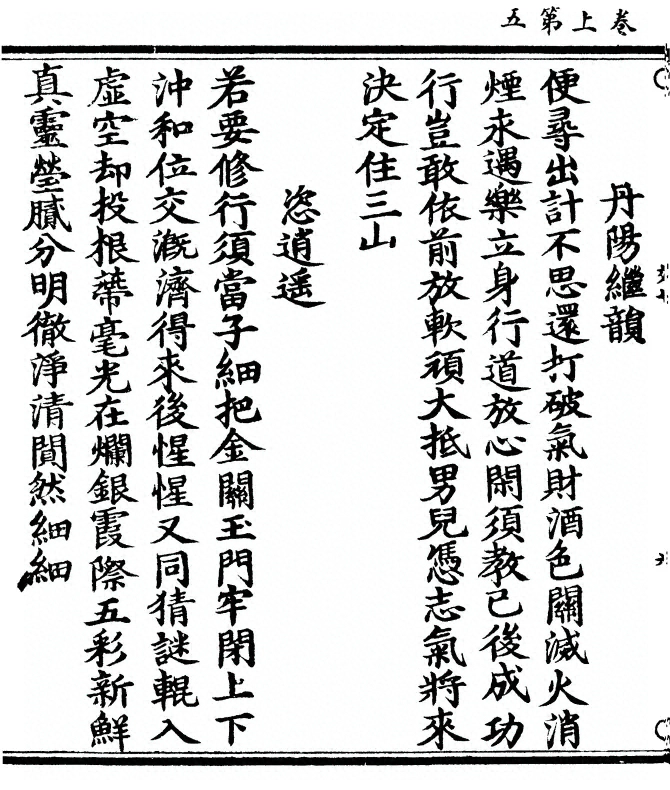 卷上第五
丹陽繼韻
便尋出計不思還打破氣財酒色關滅火消
煙永遇樂立身行道放心閑須教已後成功
行豈敢依前放軟頑大抵男兒憑志氣將來
決定住三山
恣逍遥
若要修行須當子細把金關玉門牢閉上下
沖和位交溉濟得來後惺惺又同猜謎輥入
虛空却投根蔕毫光在爛銀霞際五彩新鮮
真靈瑩膩分明徹淨清閴然細細